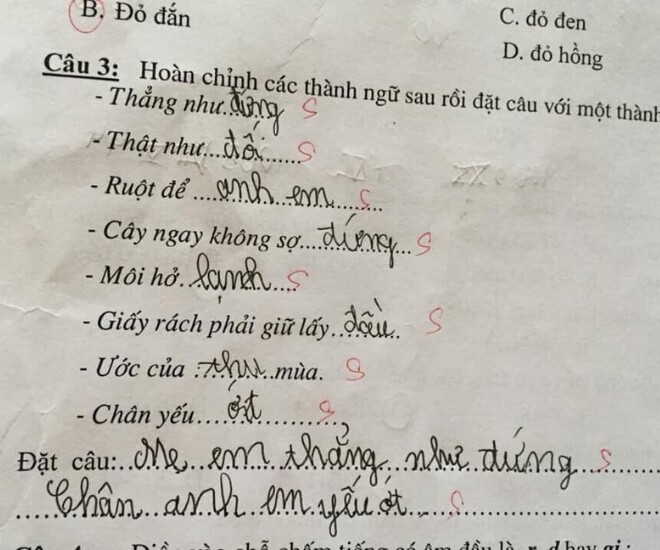 B. Đỏ đắn
C. đỏ đen
D. đỏ hồng
Câu 3: Hoàn chỉnh các thành ngữ sau rồi đặt câu với một thành
- Thẳng như..đứng S
- Thật như...đối...... S
- Ruột để ....anh...em........ S
- Cây ngay không sợ....dứng... S
- Môi hở..lạnh.... S
- Giấy rách phải giữ lấy..đầu.. S
- Ước của :.thu..mùa. S
- Chân yếu....ớt............, S
Đặt câu:..Mẹ...em...thẳng...như...dứng S........
.....Chân...anh...em yếu ớt..... S..............